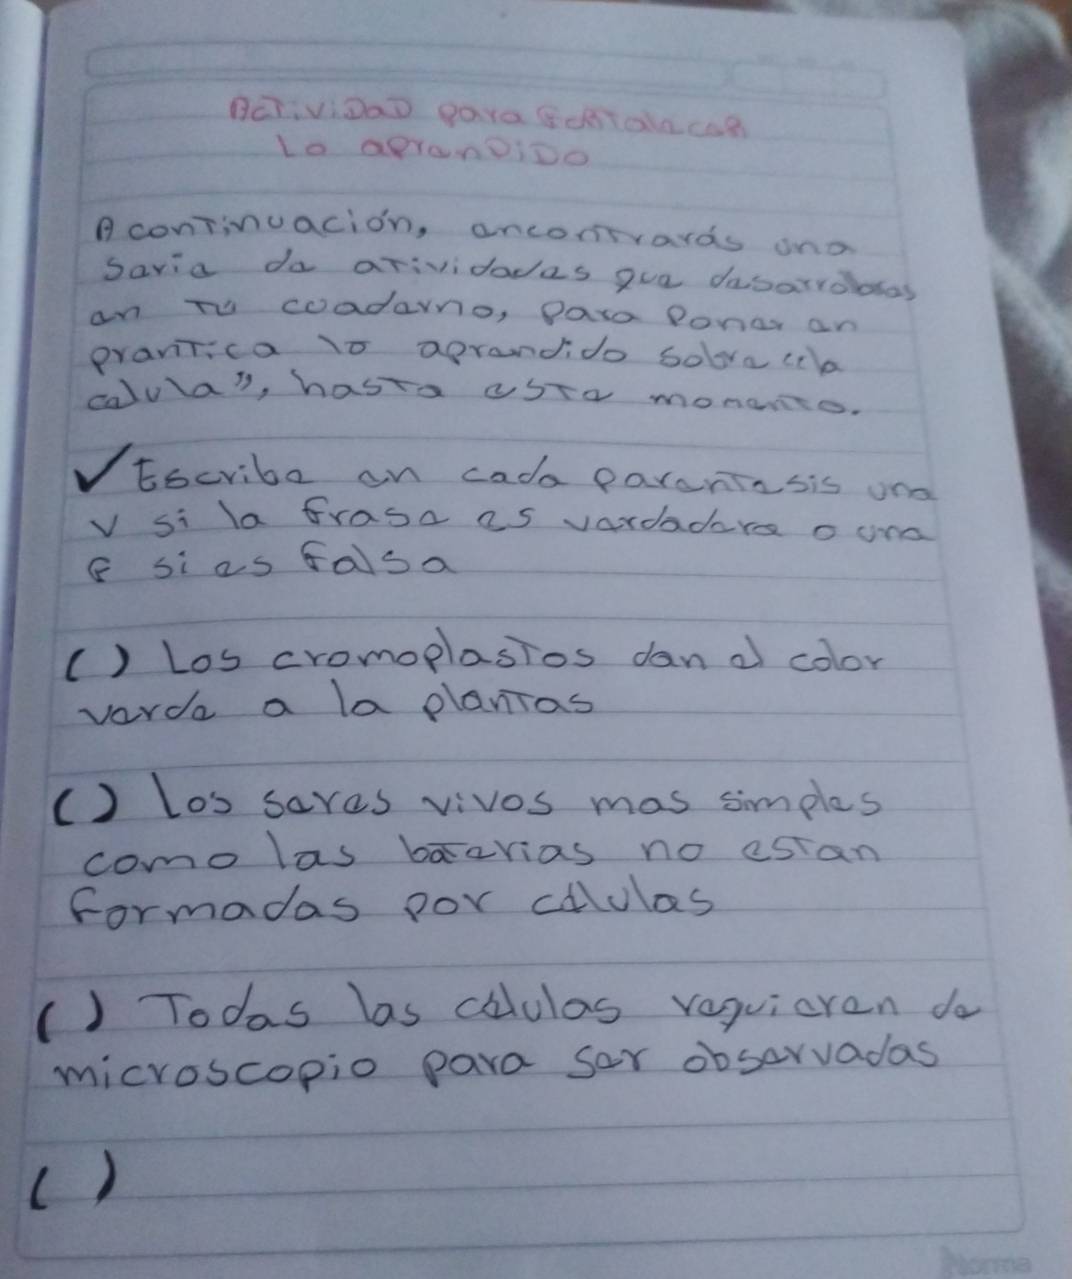 ACTIVIDAD para FORTALECER
Lo aprenDiDo
A continuación, encontrarás una
serie de atividades que desarrolaras
en tu coaderno, para Poner en
prantica lo aprendido sobre "la
celula", hasta este momento.
✓ Escribe en cada parentesis una
V si la frase es verdadera o una
F si es falsa
( ) Los cromoplastos dan el color
verde a la plantas
( ) los seres vivos mas simples
como las baterias no estan
formadas por células
( ) Todas las células requieren de
microscopio para ser observadas
( )
Norma